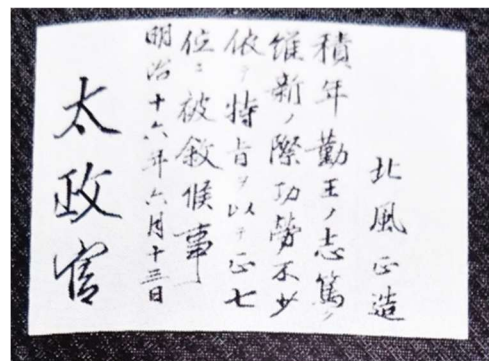 北風正造
積年勤王ノ志篤ク
維新ノ際功労不少
依テ特旨ヲ以テ正七
位ニ被叙候事
明治十六年六月十三日
太政官